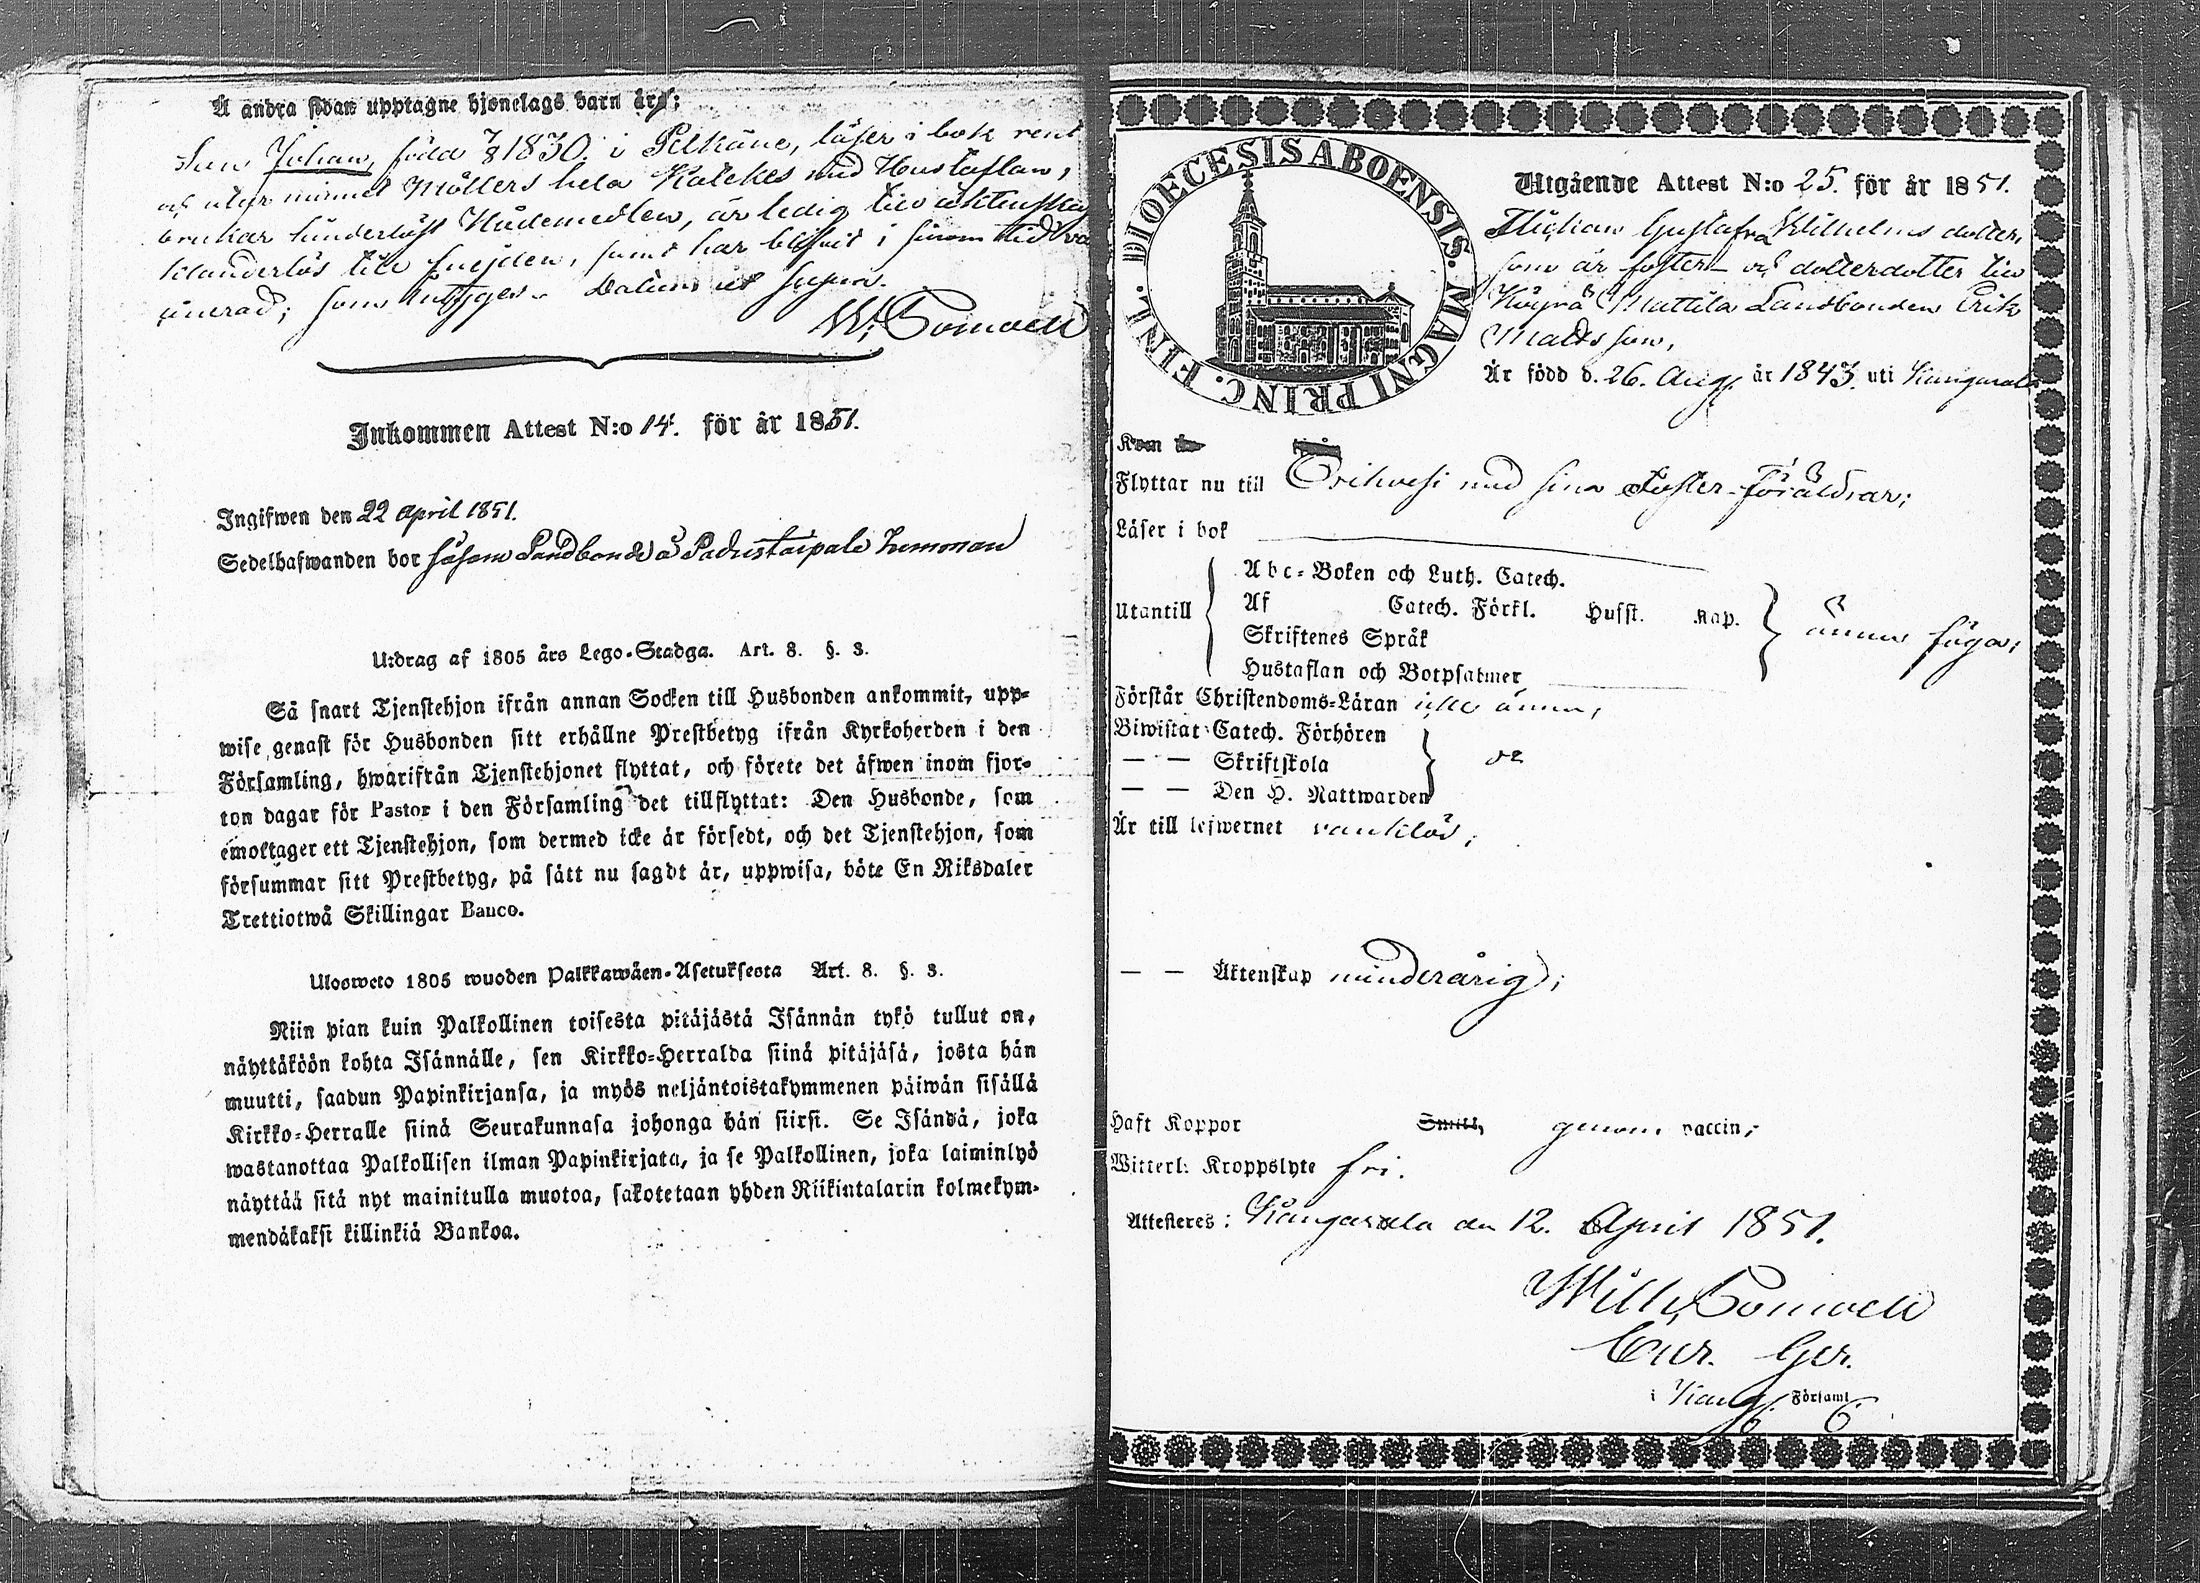 Å andra sidan upptagne hjonelags barn är;
Son Johan, född 7/8 1830 i Pelkäne, läser i bok rent
och utur minnet Möllers hela Katekes med Hustaflan,
brukar hinderlöst Nådemedlen, är ledig till äktenskap
klanderlös till frejden, samt har blifvit i sinom tid vac-
cinerad; som intygas. Datum ut supra.
W. Bomvell
Inkommen Attest N:o 14. för år 1851.
Ingifwen den 22 April 1851.
Sedelhafwanden bor såsom Landbonde å Padustaipale hemman
Utdrag af 1805 års Lego-Stadga. Art. 8. §. 3.
Så snart Tjenstehjon ifrån annan Socken till Husbonden ankommit, upp-
wise genast för Husbonden sitt erhållne Prestbetyg ifrån Kyrkoherden i den
Församling, hwarifrån Tjenstehjonet flyttat, och förete det äfwen inom fjor-
ton dagar för Pastor i den Församling det tillflyttat: Den Husbonde, som
emottager ett Tjenstehjon, som dermed icke är försedt, och det Tjenstehjon, som
försummar sitt Prestbetyg, på sätt nu sagdt är, uppwisa, böte En Riksdaler
Trettiotwå Skillingar Banco.
Ulosweto 1805 wuoden Palkkawäen-Asetuksesta Art. 8. §. 3.
Niin pian kuin Palkollinen toisesta pitäjästä Isännän tykö tullut on,
näyttäköön kohta Isännälle, sen Kirkko-Herralda siinä pitäjäsä, josta hän
muutti, saadun Papinkirjansa, ja myös neljäntoistakymmenen päiwän sisällä
Kirkko-Herralle siinä Seurakunnasa johonga hän siirsi. Se Isändä, joka
wastanottaa Palkollisen ilman Papinkirjata, ja se Palkollinen, joka laiminlyö
näyttää sitä nyt mainitulla muotoa, sakotetaan yhden Riikintalarin kolmekym-
mendäkaksi killinkiä Bankoa.
DIOECESIS ABOENSIS. MAGNI PRINC. FINL.
Utgående Attest N:o 25. för år 1851.
Flickan Gustafva Wilhelms dotter,
som är foster- och dotterdotter till
Mattila Landbonden Erik
Matts son,
Är född d. 26. Aug. år 1843. uti Kangasala
Kom
Flyttar nu till Orihvesi med sina Foster-föräldrar;
Läser i bok
Utantill
Abc-Boken och Luth. Catech.
Af Catech. Förkl. Husst. Kap.
Skriftenes Språk
Hustaflan och Botpsalmer
ännu föga;
Förstår Christendoms-Läran icke ännu,
Biwistat Catech. Förhören
— — Skriftskola
— — Den H. Nattwarden
Är till lefwernet vanklös;
— — Äktenskap minderårig;
Haft Koppor genom vaccin;
Witterl: Kroppslyte fri.
Attesteres: Kangasala den 12. April 1851.
Will. Bomvell
Cur. Ger.
i Kang. Församl